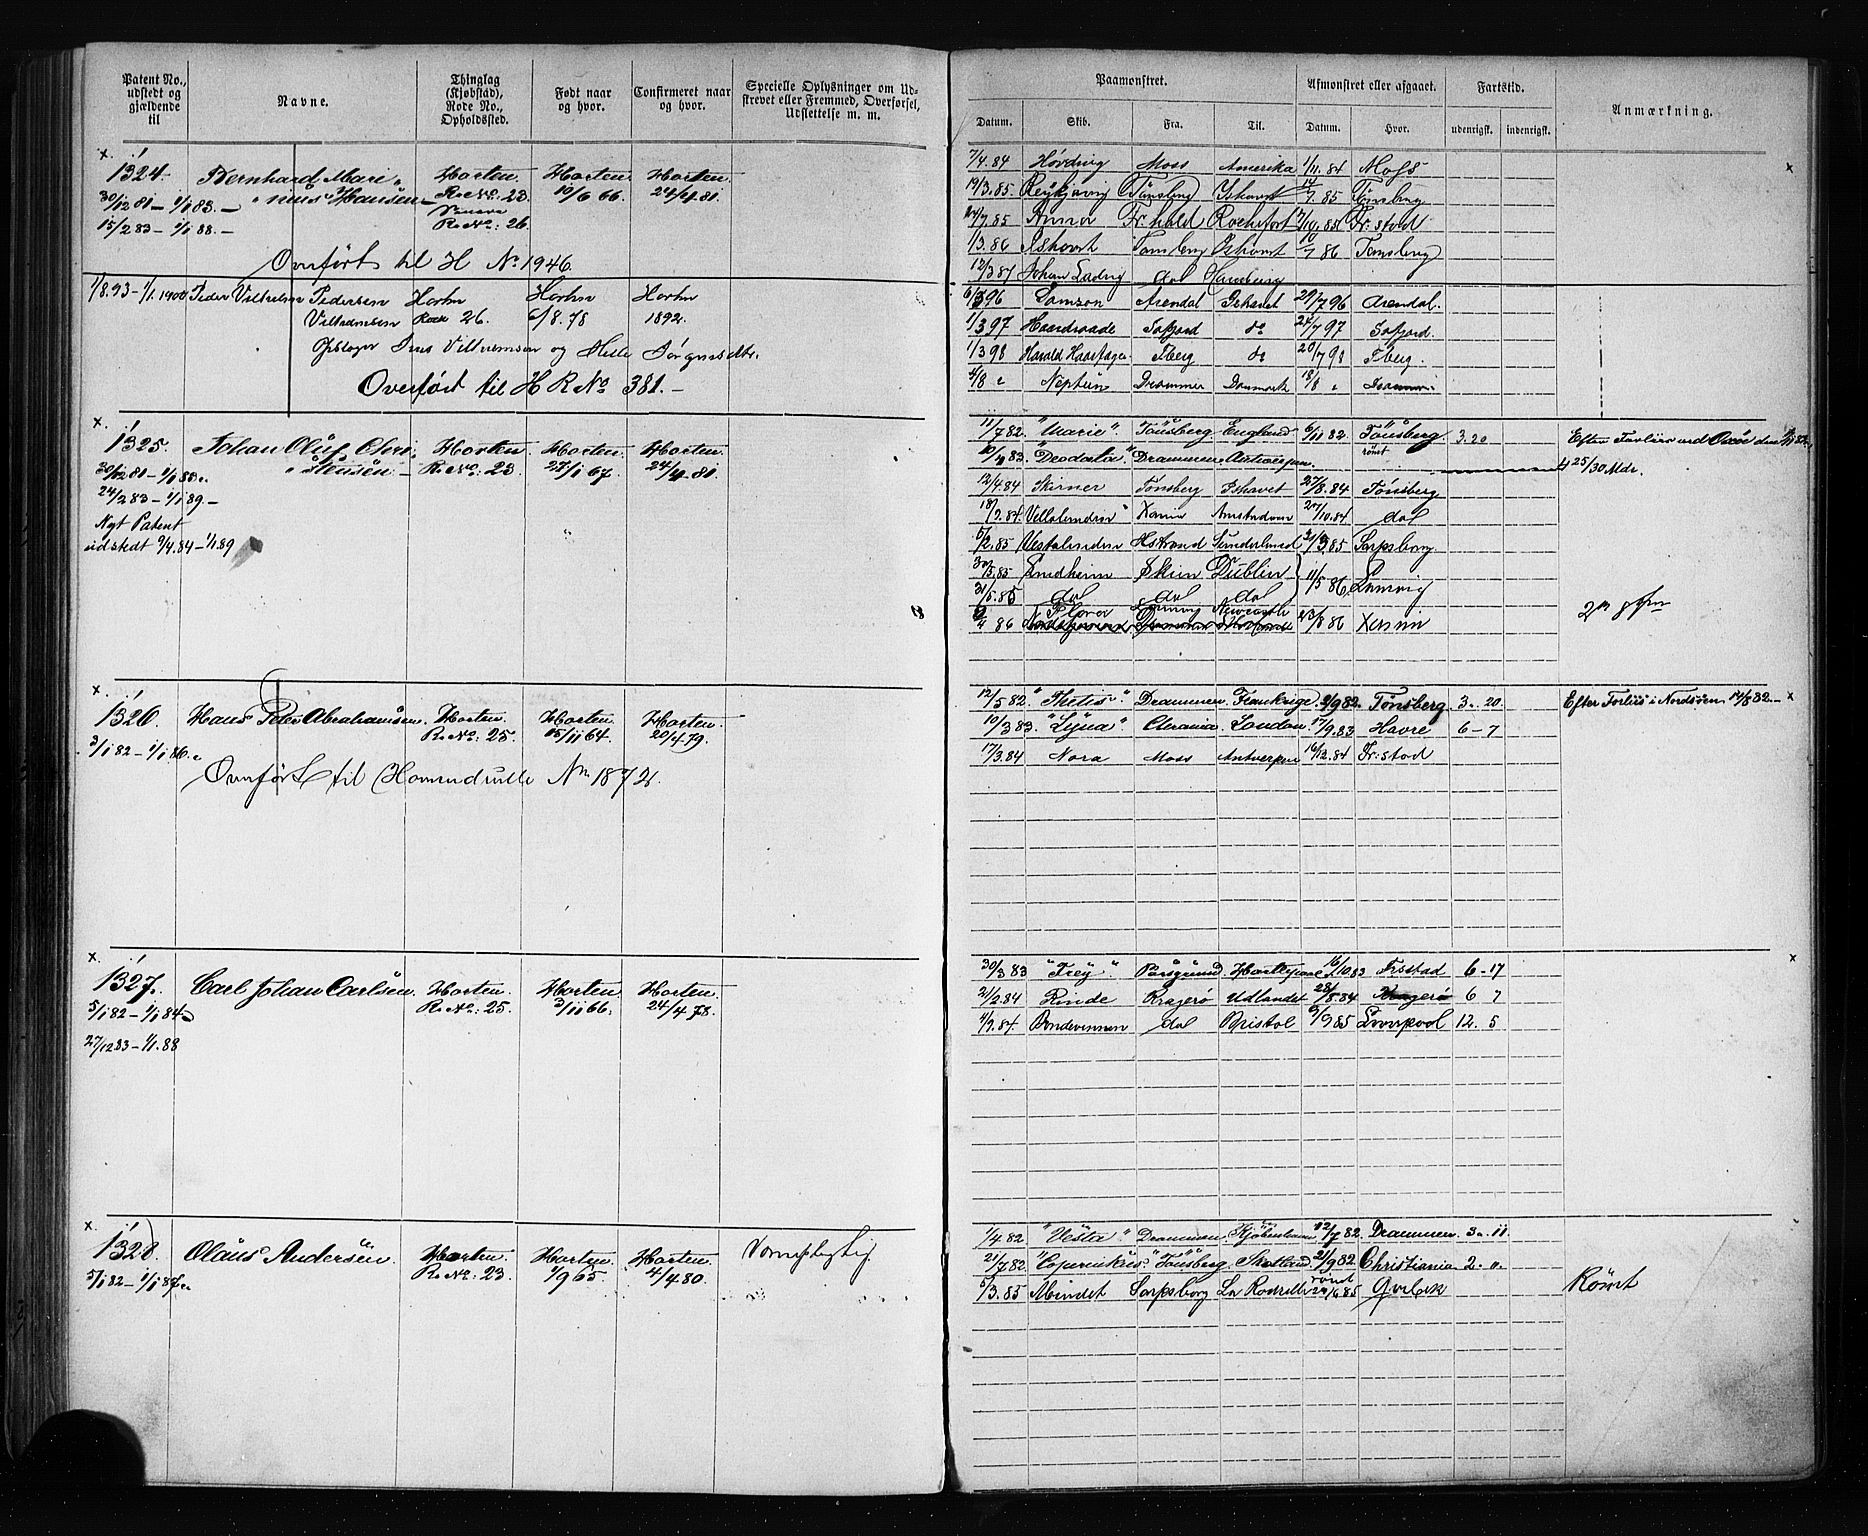 Patent No., udstedt og gjældende til
Navne.
Thinglag (Kjøbstad), Rode No., Opholdssted.
Født naar og hvor.
Confirmeret naar og hvor.
Specielle Oplysninger om Udskrevet eller Fremmed, Overførsel, Udslettelse m. m.
1324. Bernhard Mari- Horten. Horten. Horten.
30/12 81 – 1/1 83. – nius Hansen – R. No: 23 10/6 66. 24/4 81.
15/2 83 – 1/1 88. – R. No: 26.
Overført til H No 1946.
1/8.93 – 1/1.1900 Peder Vilhelm Pedersen Horten Horten Horten
Vilhelmsen Rode 26. 6/8.78 1892.
og Jørgensdtr.
Overført til H R No 381. –
x.
1325. Johan Oluf Chri- Horten Horten. Horten.
30/12 81 – 1/1 85. stensen. – R. No: 23. 27/1 67. 24/4 81.
24/2 83 – 1/1 89 –
Nyt Patent
udstedt 9/4.84 – 1/1.89
x.
1326. Hans Peter Abrahamsen. Horten. Horten. Horten.
3/1 82 – 1/1 86. R. No: 25. 15/11 64. 20/4 79.
Overført til Hovedrulle No 1872.
x.
1327. Carl Johan Carlsen. Horten. Horten. Horten.
5/1 82 – 1/1 84 R. No: 25. 3/11 66. 24/4 78.
27/12 83 – 1/1.88
x.
1328. Olaus Andersen. Horten. Horten. Horten. Værnepligtig
5/1 82 – 1/1 87. R. No: 23. 1/9 65. 4/4 80.
Paamønstret.
Afmønstret eller afgaaet.
Fartstid.
Anmærkning.
Datum. Skib. Fra. Til. Datum. Hvor. udenrigsk. indenrigsk.
7/4.84 Høvding Moss Amerika 1/11.84 Moss
19/3.85. Reykjavig Tønsberg Ishavet 7.85 Tønsberg
7.85 Anna Fr.hald Rochefort 7/10.85 Fr:stad
1/3.86 Ishavet Tønsberg Ishavet 7 86 Tønsberg
12/3 87 Johan Ludvig do Hamburg
96 Samson Arendal Ishavet 29/7 96 Arendal.
1/3 97 Haardraade do 24/7 97
1/3 98 Harald Haarfager Tberg do 20/7 98 Tberg.
4/8 " Neptun Drammen Danmark 18/8 " Drammen
11/7 82. "Marie" Tønsberg England 6/11 82 Tønsberg. 3.20 Efter Forliis ved
83. "Deodata" Drammen Antwerpen. rømt 4 25/30 Mdr.
12/4 84 Skirner Tønsberg Ishavet 27/8.84 Tønsberg
18/9.84. Xania Amsterdam 27/10.84. do
5/2.85 Sunderland 3.85 Sarpsborg
30/5.85 Skien Dublin 11/5 86
31/5.85 do do do
86 Flora Newcastle 23/8 86 Xania
12/5 82 "Thetis" Drammen Frankrige. 9/9 82. Tønsberg. 3. 20. Efter Forliis i Nordsøen 14/8 82 –
10/3 83 London. 17/9.83 Havre 6 – 7
17/3.84 Nora Moss Antwerpen 16/12.84 Fr:stad
30/3 83 "Frey" Porsgrund Hartlepool 16/10.83 Frstad 6 – 17
21/2.84 Rinde Kragerø Udlandet 28/8.84 Kragerø 6 7
1/9.84. do Bristol 9/9 85 Liverpool 12. 5
1/4.82 "Vesta" Drammen. Kjøbenhavn 12/7 82. Drammen 3. 11
21/7 82. "Copernikus" Tønsberg. Skotland. 21/9 82 Christiania 2. 0.
5/3.85 Mindet Sarpsborg La Rochelle rømt 85 Rømt